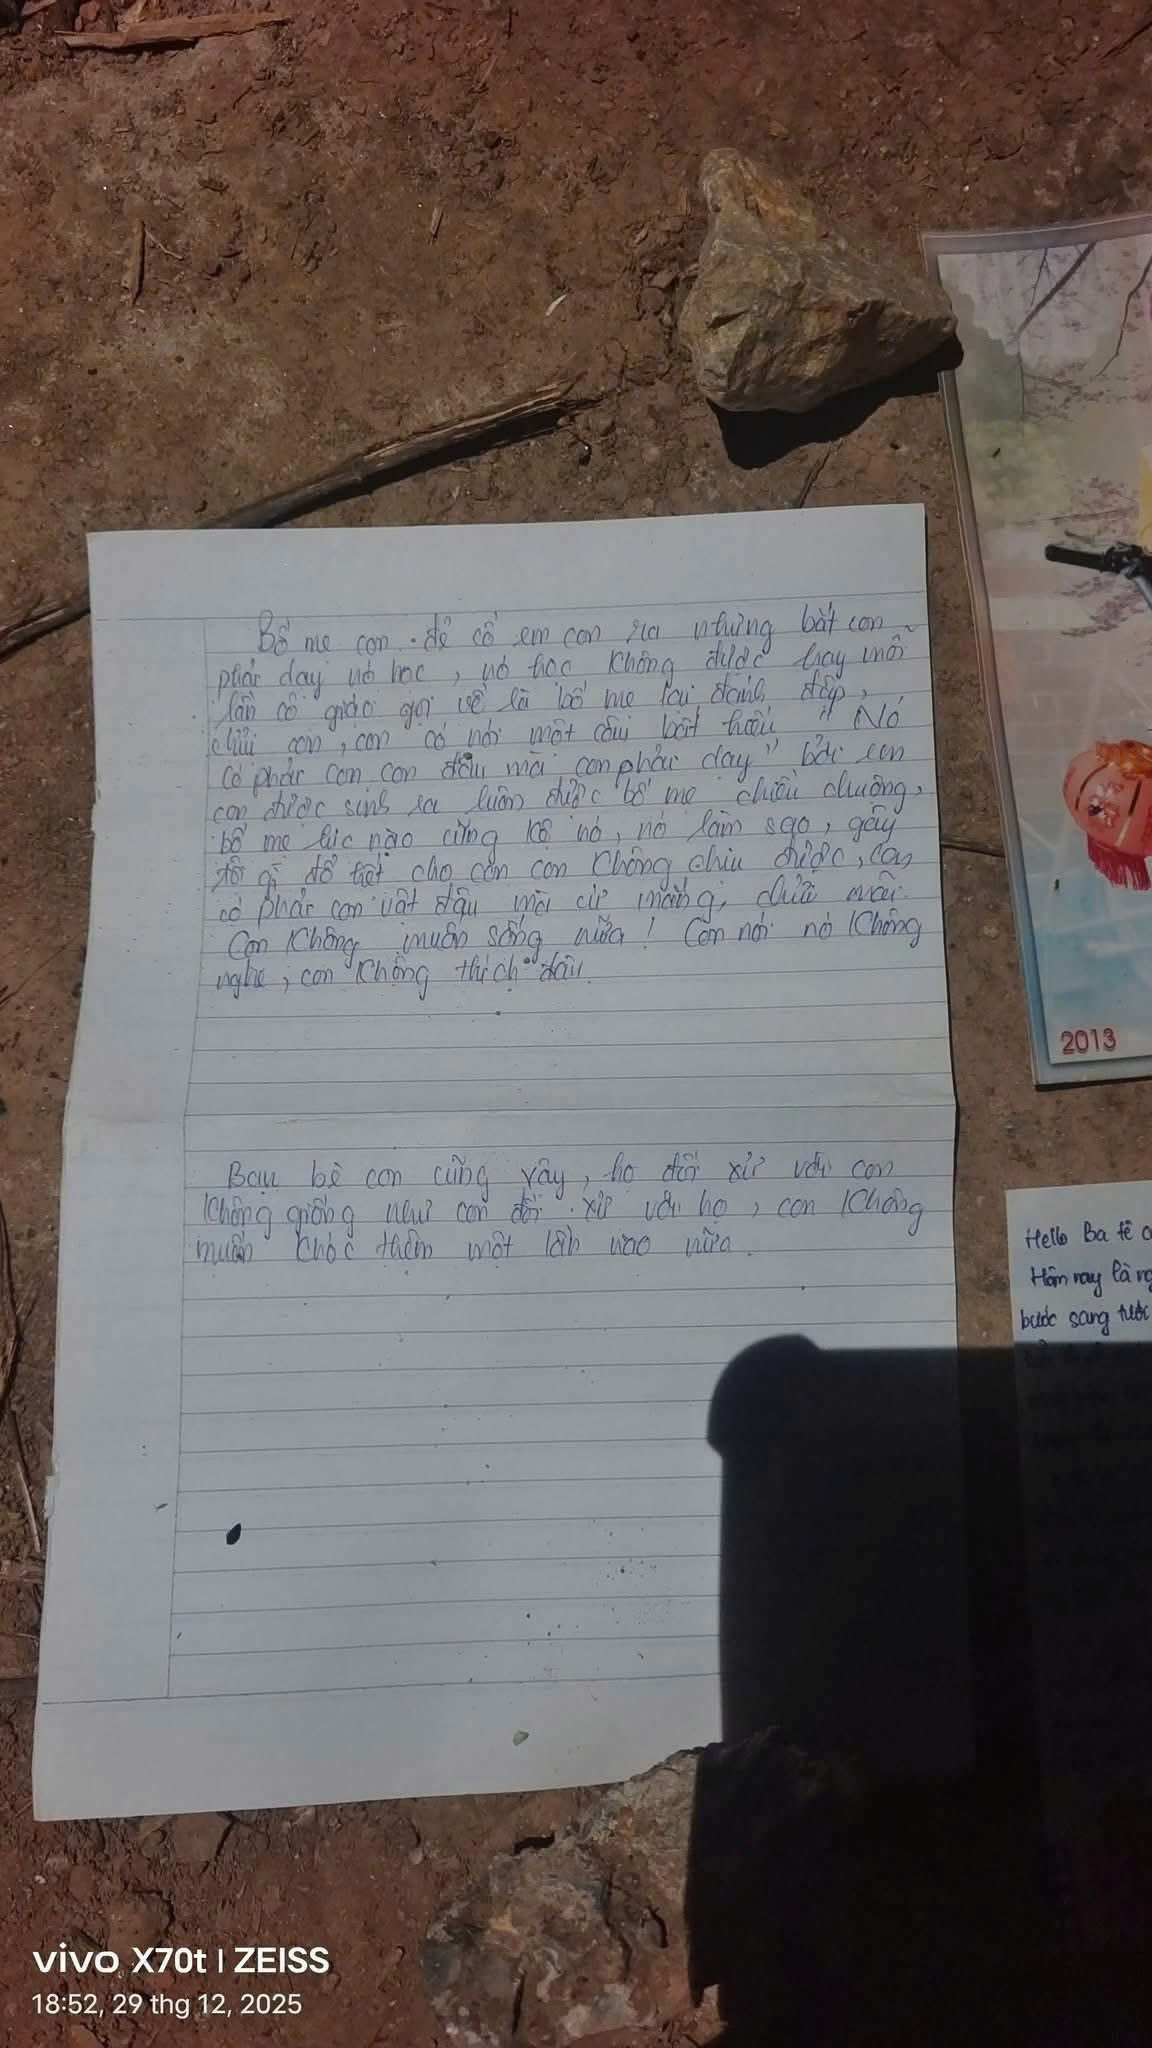 Bố mẹ con đẻ cổ em con ra nhưng bắt con
phải dạy nó học, nó học không được hay mỗi
lần cô giáo gọi về là bố mẹ lại đánh đập,
chửi con, con có nói một câu bất hiếu " Nó
có phải con con đâu mà con phải dạy" bởi em
con được sinh ra luôn được bố mẹ chiều chuộng,
bố mẹ lúc nào cũng kệ nó, nó làm sao, gây
tội gì đổ hết cho con con không chịu được, con
có phải con vật đâu mà cứ mắng, chửi mãi.
Con không muốn sống nữa! Con nói nó không
nghe, con không thích dâu.
Bạn bè con cũng vậy, họ đối xử với con
không giống như con đối xử với họ, con không
muốn khóc thêm một lần nào nữa.
2013
Hello Ba tê
Hôm nay là
bước sang tước
vivo X70t | ZEISS
18:52, 29 thg 12, 2025